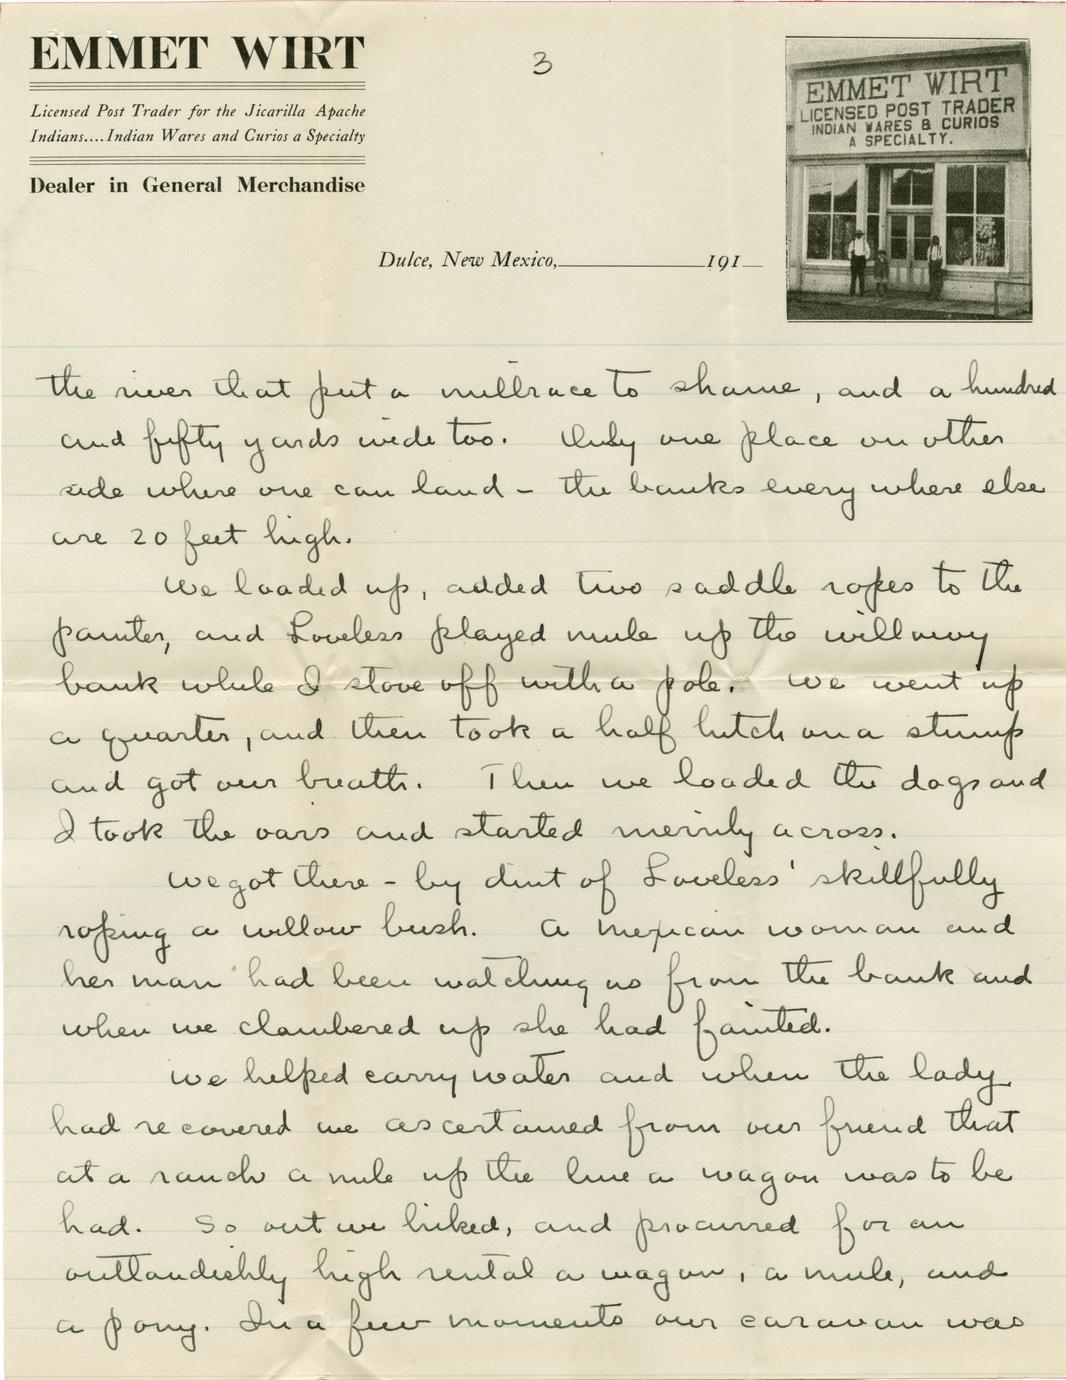 EMMET WIRT
Licensed Post Trader for the Jicarilla Apache
Indians....Indian Wares and Curios a Specialty
Dealer in General Merchandise
3
EMMET WIRT
LICENSED POST TRADER
INDIAN WARES & CURIOS
A SPECIALTY.
Dulce, New Mexico,__________191__
the river that put a millrace to shame, and a hundred
and fifty yards wide too. Only one place on other
side where one can land - the banks every where else
are 20 feet high.
We loaded up, added two saddle ropes to the
painter, and Loveless played mule up the willowy
bank while I stove off with a pole. We went up
a quarter, and then took a half hitch on a stump
and got our breath. Then we loaded the dogs and
I took the oars and started merrily across.
We got there - by dint of Loveless' skillfully
roping a willow bush. A mexican woman and
her man had been watching us from the bank and
when we clambered up she had fainted.
We helped carry water and when the lady
had recovered we ascertained from our friend that
at a ranch a mile up the line a wagon was to be
had. So out we hiked, and procurred for an
outlandishly high rental a wagon, a mule, and
a pony. In a few moments our caravan was